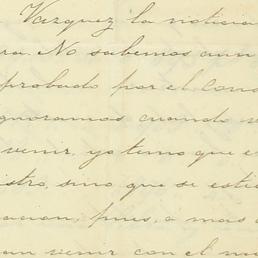 Vazquez la noticia
ra. No sabemos aun
probado por el Cons
gnoramos cuando v
venir, yo temo que e
istro, sino que se estie
acion; pues, a mas
an venir con el m